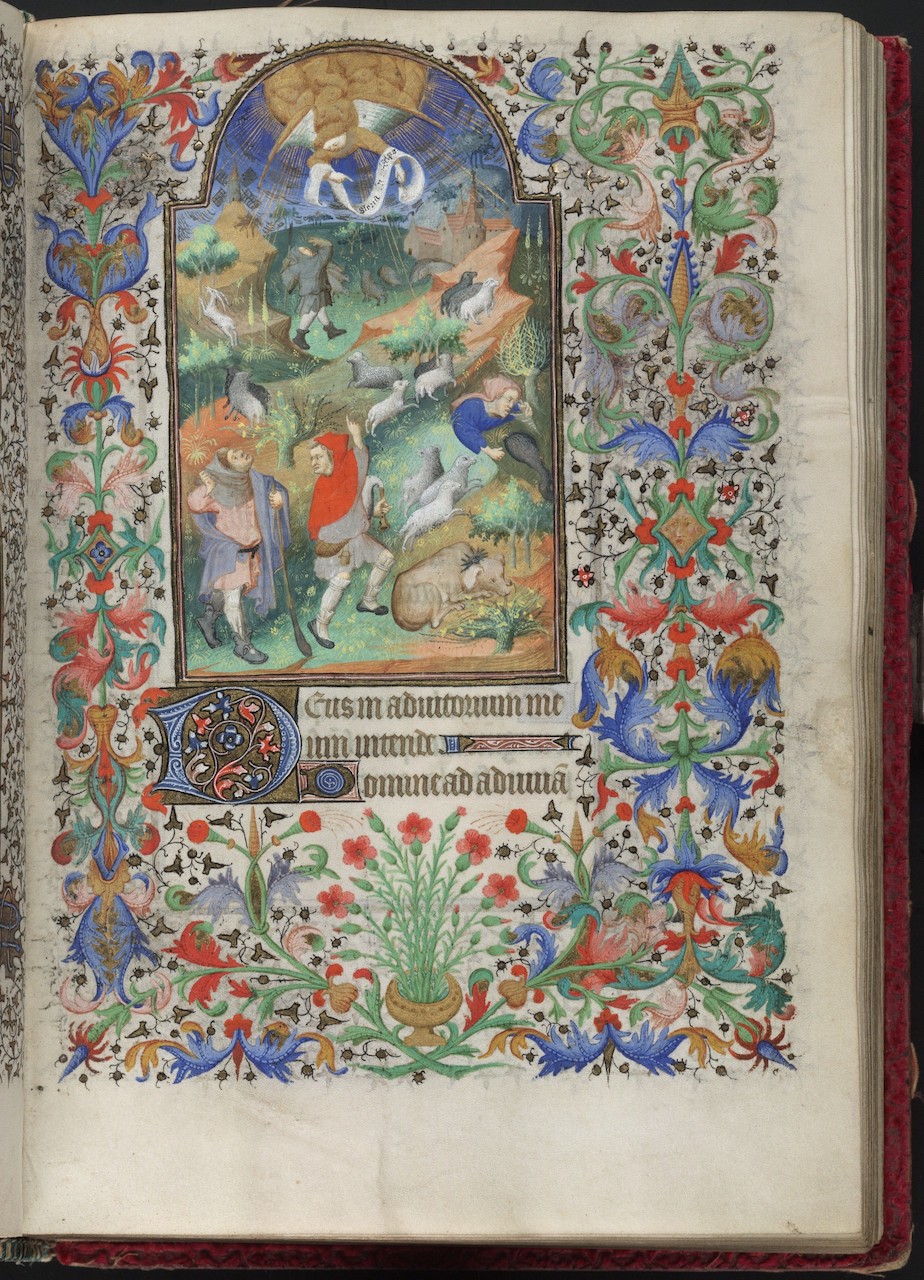 Gloria in
Deus in adiutorium me
um intende
Domine ad adiuuā